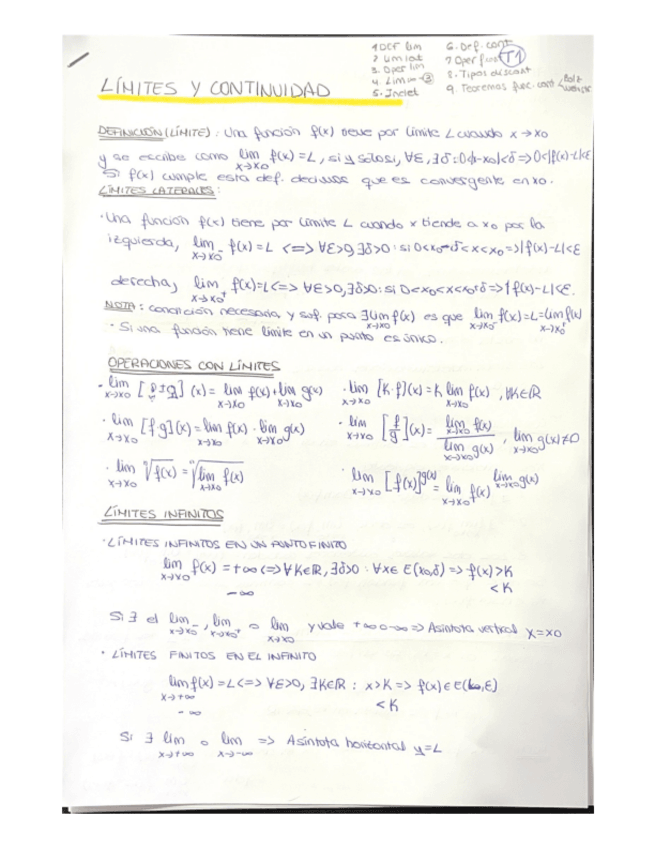 1 DEF lim
2 lim lat
3. Oper lim
4. Lim ∞
5. Indet
6. Def. cont
7 Oper func
8. Tipos discont
9. Teoremas func. cont
T1
LÍMITES Y CONTINUIDAD
DEFINICIÓN (LÍMITE) : Una función f(x) tiene por límite L cuando x → x0
y se escribe como lim x→x0 f(x) = L, si y sólo si, ∀ε, ∃δ : 0<|x-x0|<δ => 0<|f(x)-L|<ε
Si f(x) cumple esta def. decimos que es convergente en x0.
LÍMITES LATERALES :
· Una función f(x) tiene por límite L cuando x tiende a x0 por la
izquierda, lim x→x0- f(x) = L <=> ∀ε>0, ∃δ>0 : si 0<x0-δ<x<x0 => |f(x)-L|<ε
derecha, lim x→x0+ f(x)=L <=> ∀ε>0, ∃δ>0 : si 0<x0<x<x0+δ => |f(x)-L|<ε.
NOTA : condición necesaria y suf. para ∃ lim x→x0 f(x) es que lim x→x0- f(x) = L = lim x→x0+ f(x)
· Si una función tiene límite en un punto es único.
OPERACIONES CON LÍMITES
· lim x→x0 [f±g](x) = lim x→x0 f(x) + lim x→x0 g(x) · lim x→x0 [K·f](x) = K lim x→x0 f(x) , ∀K∈ℝ
· lim x→x0 [f·g](x) = lim x→x0 f(x) · lim x→x0 g(x) · lim x→x0 [f/g](x) = lim x→x0 f(x) / lim x→x0 g(x) , lim x→x0 g(x) ≠ 0
· lim x→x0 ⁿ√f(x) = ⁿ√lim x→x0 f(x) · lim x→x0 [f(x)]^g(x) = lim x→x0 f(x) ^ lim x→x0 g(x)
LÍMITES INFINITOS
· LÍMITES INFINITOS EN UN PUNTO FINITO
lim x→x0 f(x) = +∞ <=> ∀K∈ℝ, ∃δ>0 : ∀x∈ E(x0,δ) => f(x) > K
-∞ < K
Si ∃ el lim x→x0-, lim x→x0+ o lim x→x0 y vale +∞ o -∞ => Asíntota vertical x = x0
· LÍMITES FINITOS EN EL INFINITO
lim x→+∞ f(x) = L <=> ∀ε>0, ∃K∈ℝ : x>K => f(x) ∈ E(L,ε)
-∞ < K
Si ∃ lim x→+∞ o lim x→-∞ => Asíntota horizontal y=L